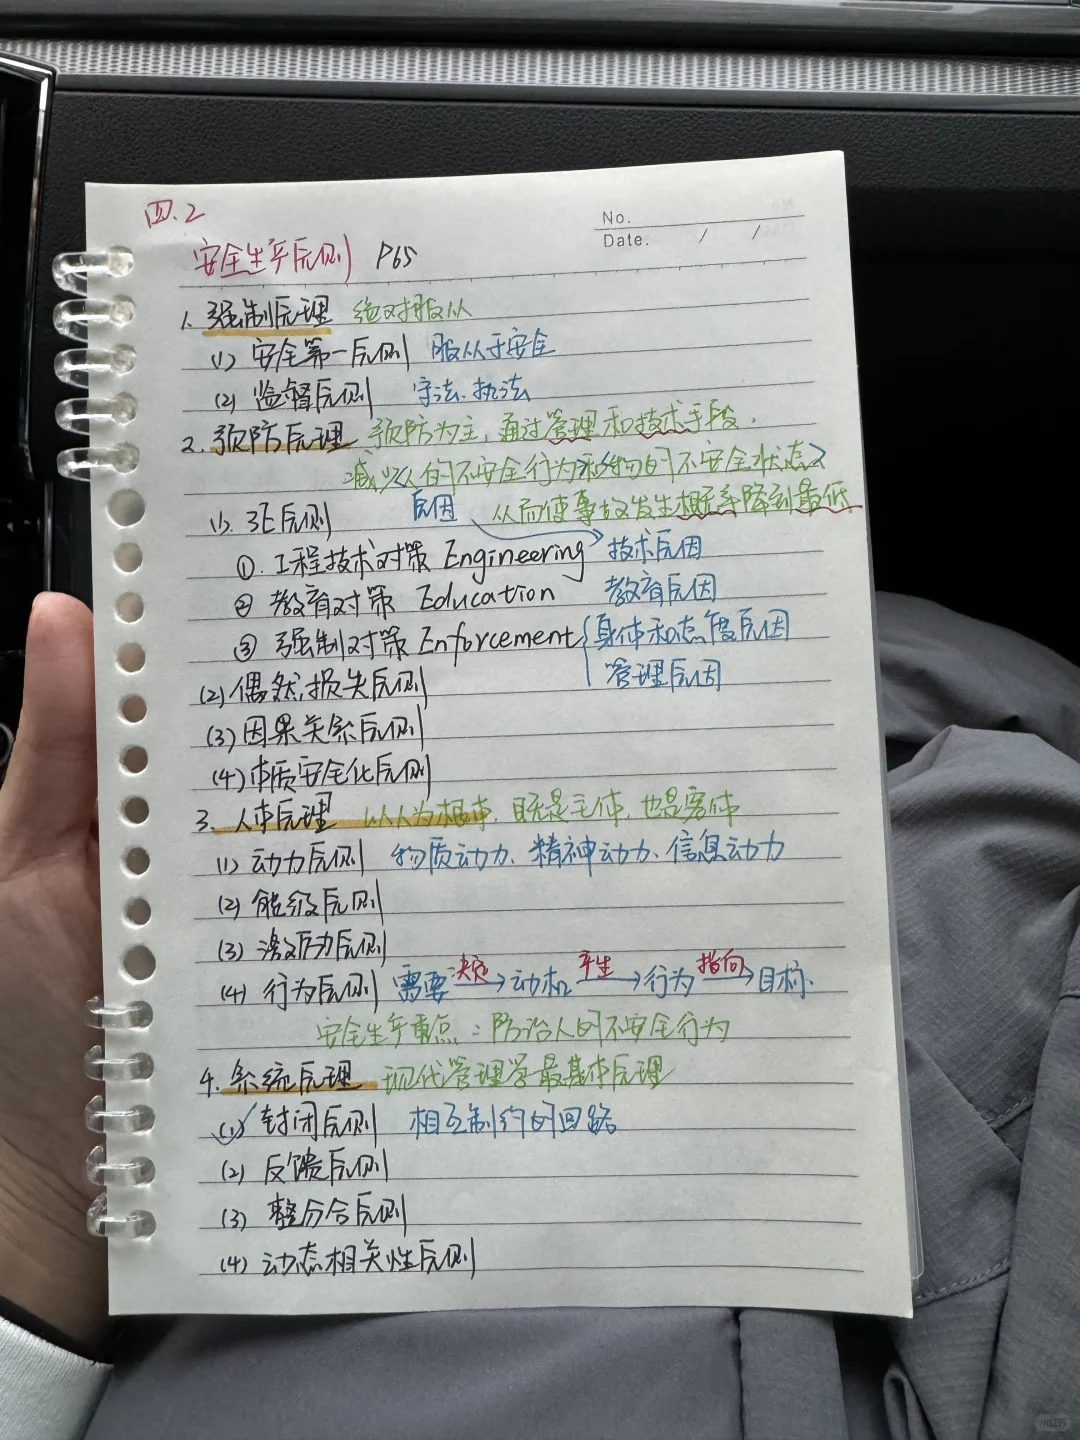 四.2
No.
Date. / /
安全生产原则 P65
1. 强制原理 绝对服从
(1) 安全第一原则 服从于安全
(2) 监督原则 守法、执法
2. 预防原理 预防为主,通过管理和技术手段,
减少<人的不安全行为和物的不安全状态>
从而使事故发生概率降到最低
(1). 3E原则 原因
①. 工程技术对策 Engineering 技术原因
② 教育对策 Education 教育原因
③ 强制对策 Enforcement { 身体和态度原因
管理原因
(2) 偶然损失原则
(3) 因果关系原则
(4) 本质安全化原则
3. 人本原理 以人为根本,既是主体,也是客体
(1) 动力原则 物质动力、精神动力、信息动力
(2) 能级原则
(3) 激励原则
(4) 行为原则 需要 决定→ 动机 产生→ 行为 指向→ 目标.
安全生产重点:防治人的不安全行为
4. 系统原理 现代管理学最基本原理
(1)✓ 封闭原则 相互制约的回路
(2) 反馈原则
(3) 整分合原则
(4) 动态相关性原则